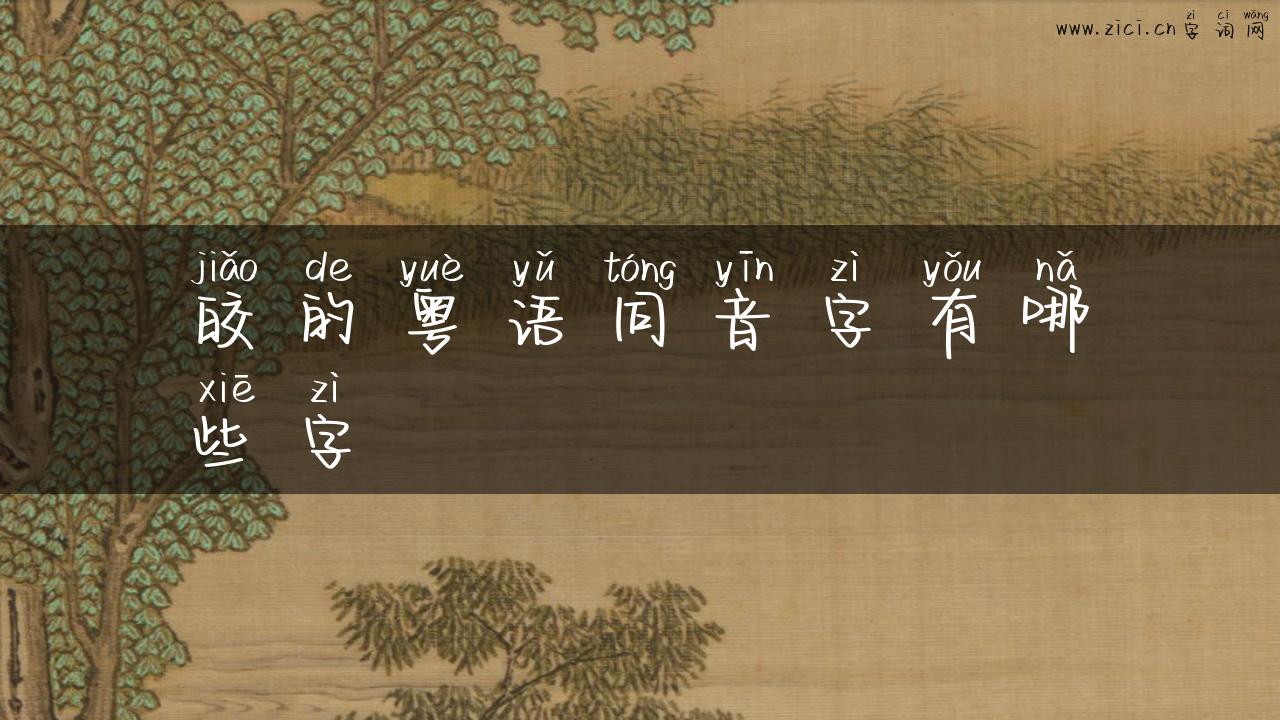 zì cí wǎng
www.zici.cn字词网
jiǎo de yuè yǔ tóng yīn zì yǒu nǎ
皎的粤语同音字有哪
xiē zì
些字